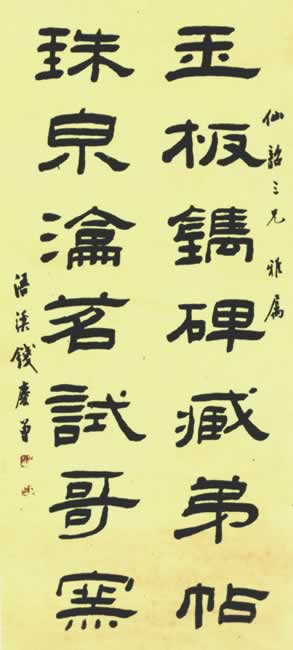 仙韶三兄 雅属
玉板鐫碑臧弟帖
珠泉瀹茗試哥窯
浯溪錢慶曾